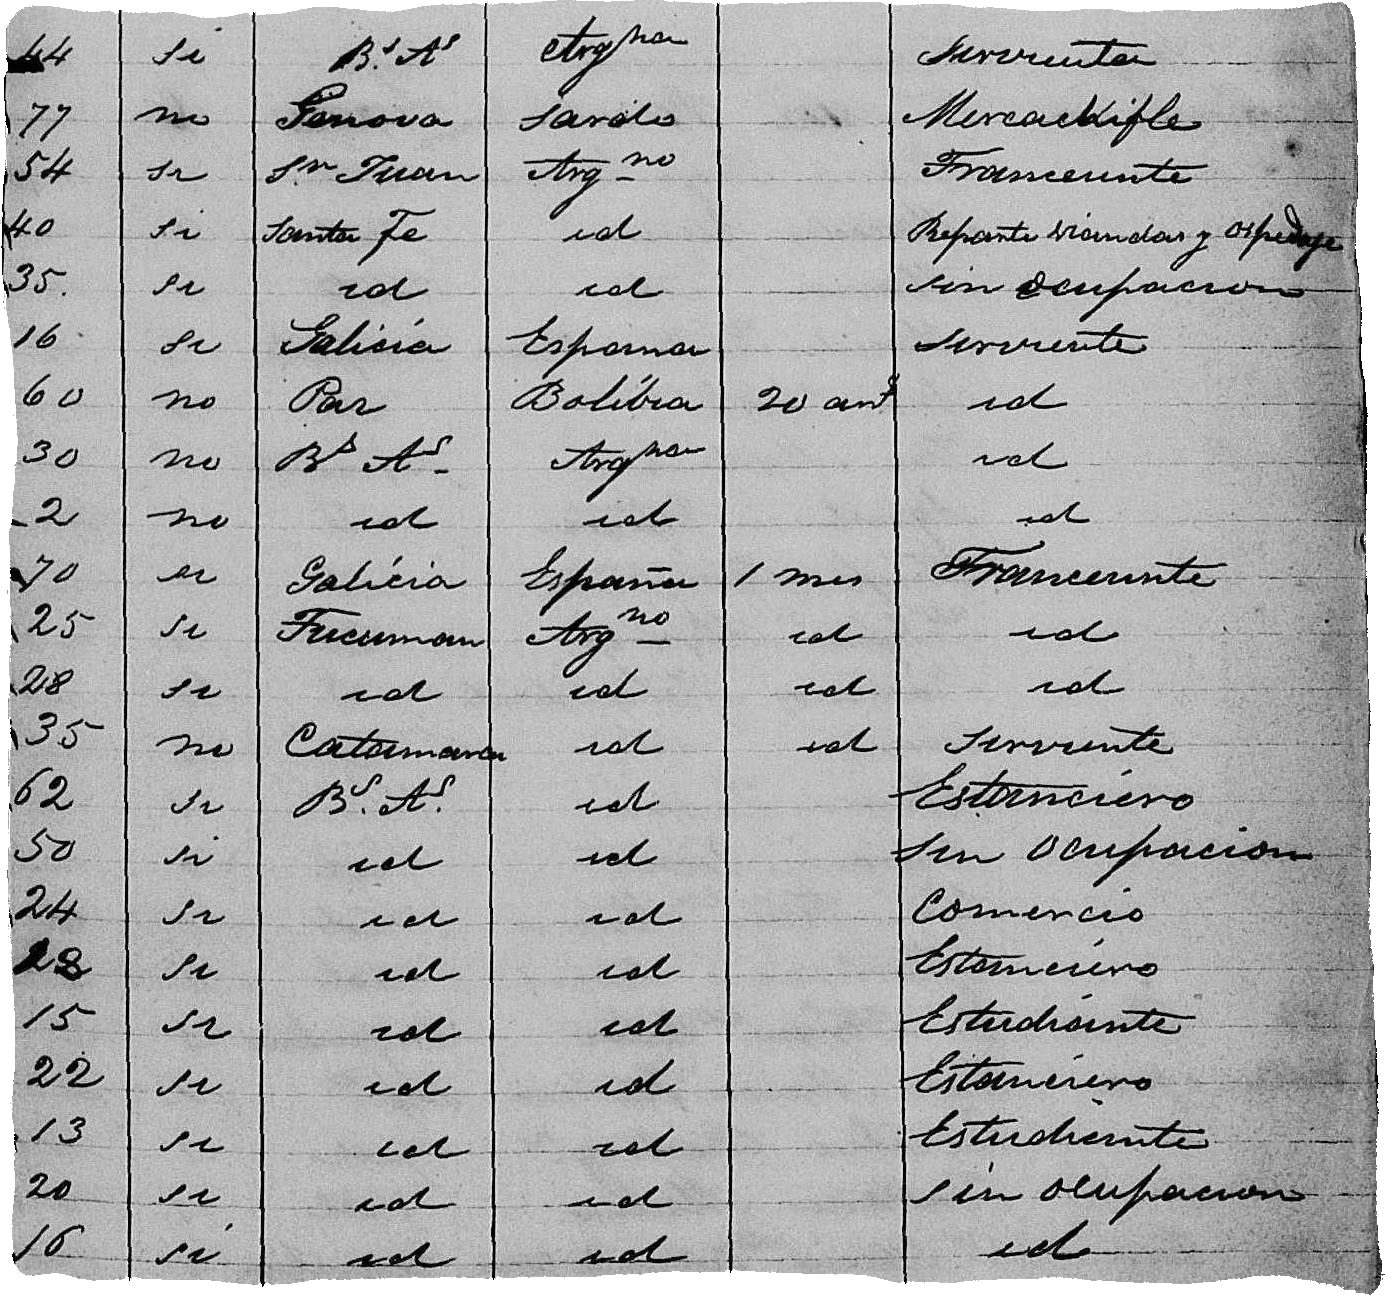 44 si Bˢ. Aˢ Argⁿᵃ Sirvienta
77 no Genova Sardo Mercachifle
54 si Sⁿ Juan Argⁿᵒ Transeunte
40 si Santa Fe id Reparte viandas y ospedaje
35. si id id sin ocupacion
16 si Galicia Espana Sirviente
60 no Paz Bolibia 20 anˢ id
30 no Bˢ Aˢ Argⁿᵃ id
2 no id id id
70 si Galicia España 1 mes Transeunte
25 si Tucuman Argⁿᵒ id id
28 si id id id id
35 no Catamarca id id Sirviente
62 si Bˢ. Aˢ. id Estanciero
50 si id id sin ocupacion
24 si id id Comercio
28 si id id Estanciero
15 si id id Estudiante
22 si id id Estanciero
13 si id id Estudiente
20 si id id sin ocupacion
16 si id id id